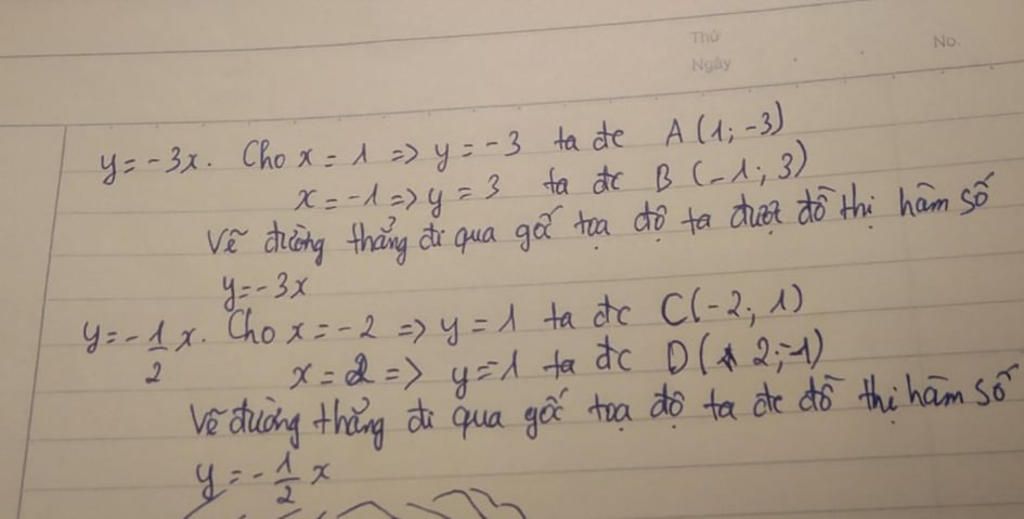 Thứ
Ngày
No.
y=-3x. Cho x=1 => y=-3 ta đc A(1;-3)
x=-1 => y=3 ta đc B(-1;3)
Vẽ đường thẳng đi qua gốc toạ độ ta được đồ thị hàm số
y=-3x
y=-1/2 x. Cho x=-2 => y=1 ta đc C(-2;1)
x=2 => y=-1 ta đc D(2;-1)
Vẽ đường thẳng đi qua gốc toạ độ ta đc đồ thị hàm số
y=-1/2 x